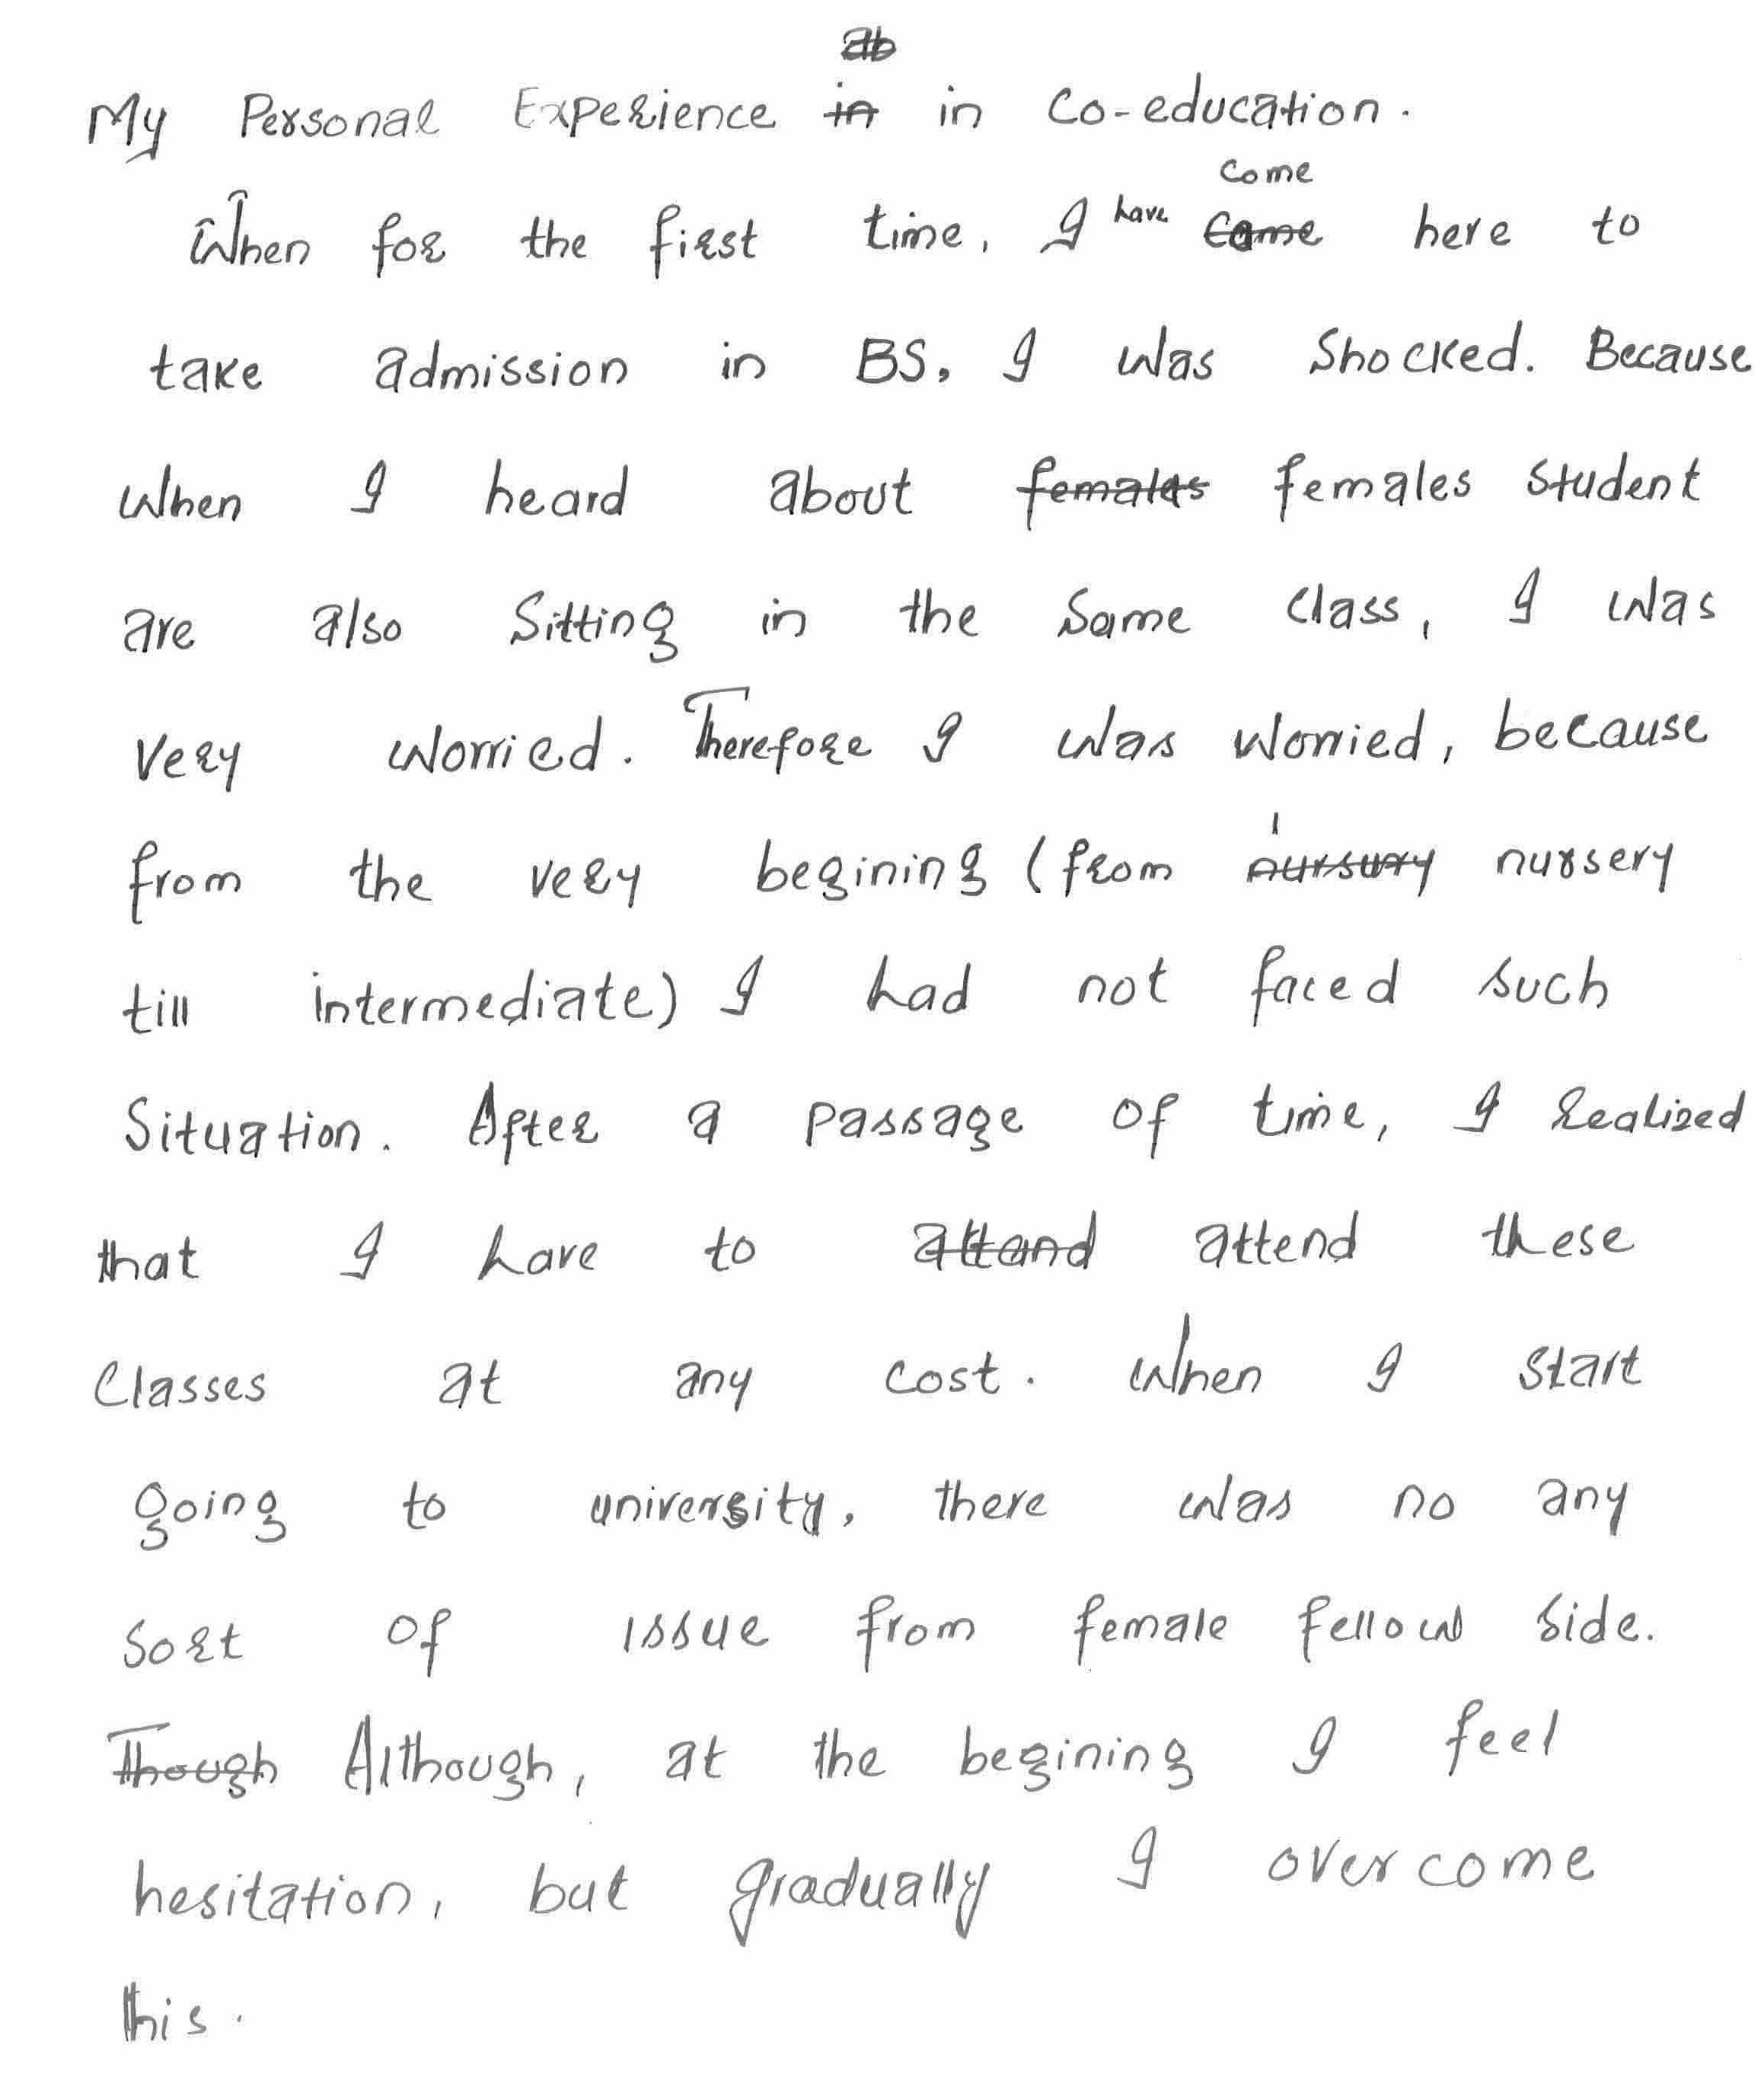 My Personal Experience in Co-education.
When for the first time, I have come here to
take admission in BS, I was shocked. Because
when I heard about females student
are also sitting in the same class, I was
very worried. Therefore I was worried, because
from the very begining (from nursery
till intermediate) I had not faced such
situation. After a passage of time, I realized
that I have to attend these
classes at any cost. When I start
going to university, there was no any
sort of issue from female fellow side.
Although, at the begining I feel
hesitation, but gradually I overcome
this.